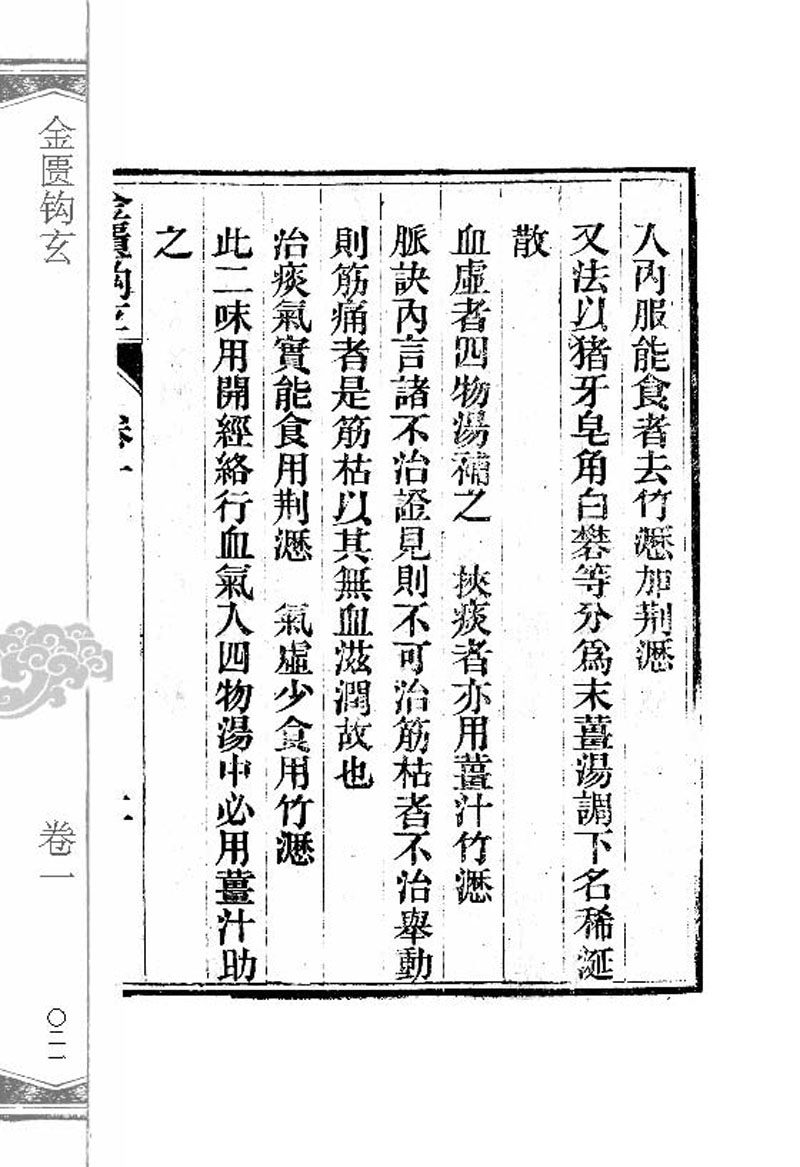 入內服能食者去竹瀝加荆瀝
又法以猪牙皂角白礬等分爲末薑湯調下名稀涎
散
血虛者四物湯補之　挾痰者亦用薑汁竹瀝
脈訣內言諸不治證見則不可治筋枯者不治舉動
則筋痛者是筋枯以其無血滋潤故也
治痰氣實能食用荆瀝　氣虛少食用竹瀝
此二味用開經絡行血氣入四物湯中必用薑汁助
之
金匱鈎玄
卷一
二
金匮钩玄
卷一
〇二一